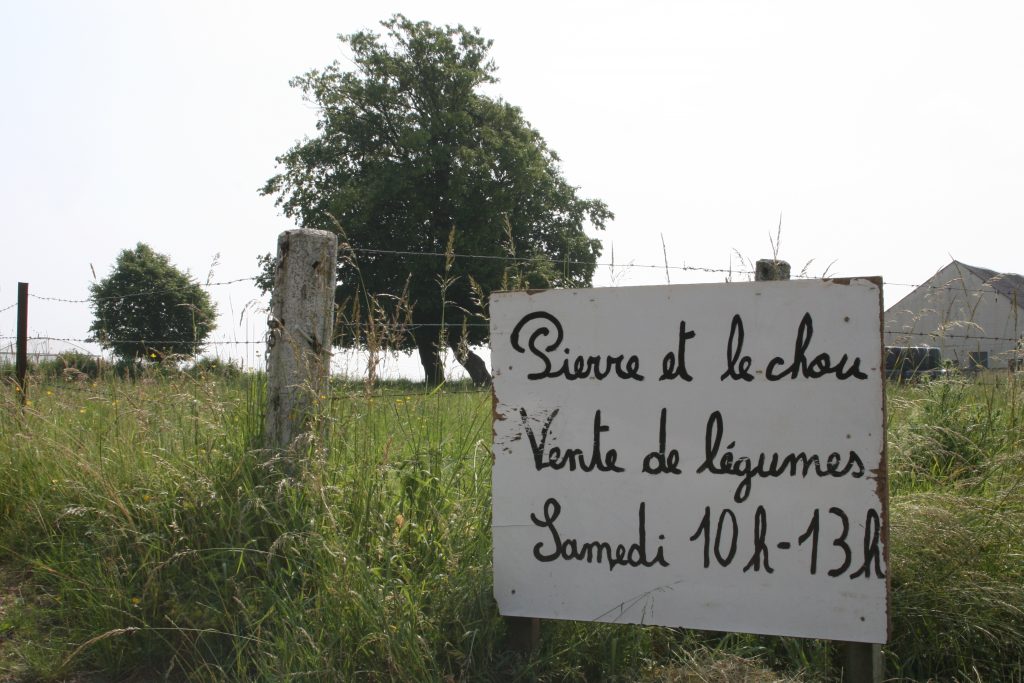 Pierre et le chou
Vente de légumes
Samedi 10h-13h